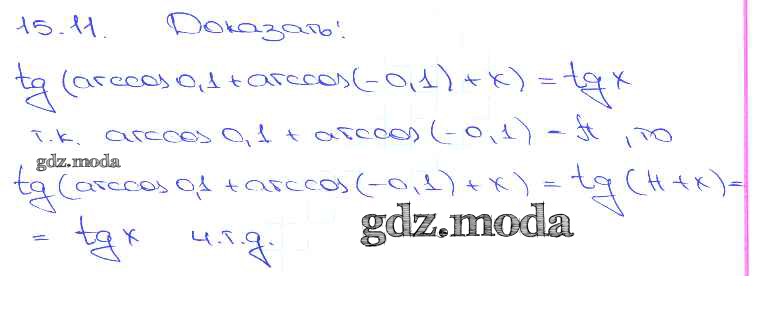 15.11. Доказать!
tg (arccos 0,1 + arccos (-0,1) + x) = tg x
т.к. arccos 0,1 + arccos (-0,1) = π , то
gdz.moda
tg (arccos 0,1 + arccos (-0,1) + x) = tg (π + x) =
= tg x ч.т.д.
gdz.moda